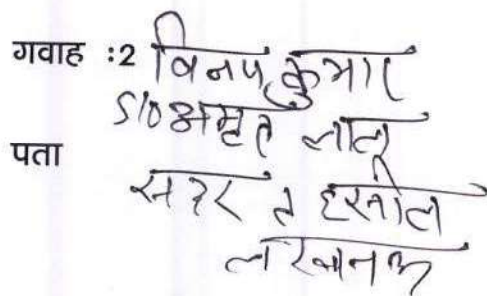 गवाह :2 विनय कुमार
S/o अमृत लाल
पता
सदर तहसील
लखनऊ